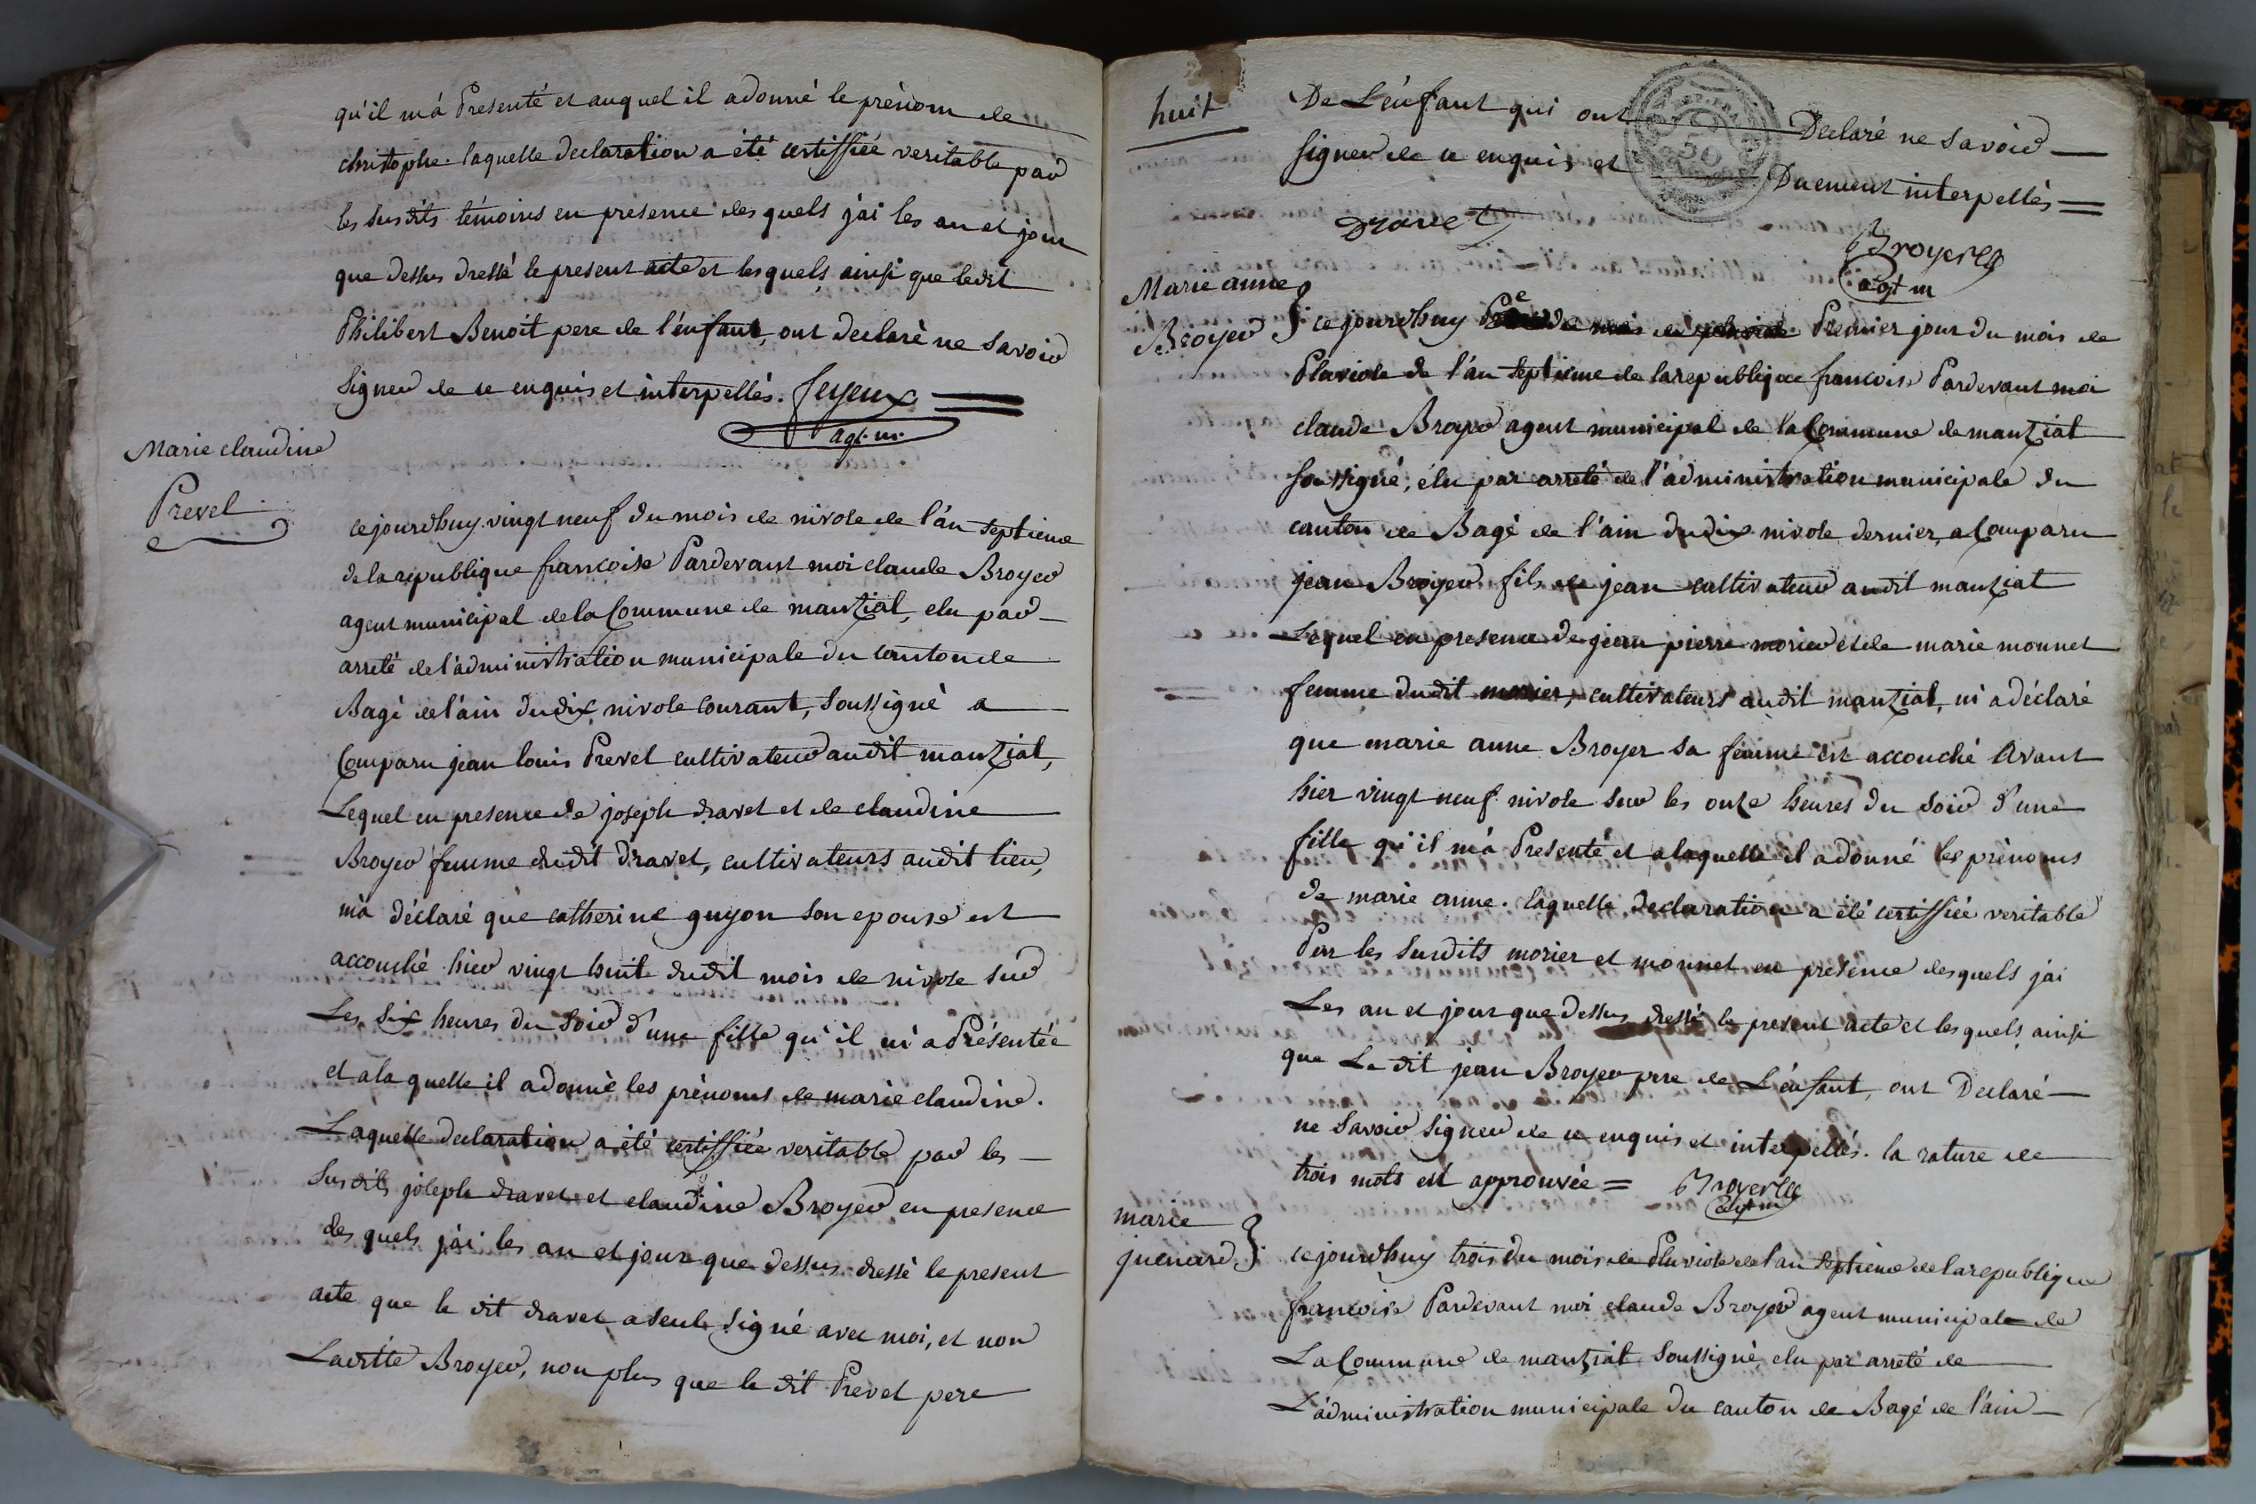 qu'il m'a Presenté et auquel il a donné le prénom de
christophe. laquelle declaration a été certiffiée veritable par
les susdits témoins en presence des quels j'ai les an et jour
que dessus dressé le present acte et les quels ainsi que ledit
Philibert Benoit pere de l'enfant, ont declaré ne savoir
signer de ce enquis et interpellés. feyeux
agt. m.
Marie claudine
Prevel
cejourdhuy vingt neuf du mois de nivose de l'an septieme
de la republique francoise Pardevant moi claude Broyer
agent municipal de la Commune de manziat, elu par
arreté de l'administration municipale du canton de
Bagé de l'ain du dix nivose courant, soussigné a
Comparu jean louis Prevel cultivateur audit manziat,
Lequel en presence de joseph dravet et de claudine
Broyer femme dudit dravet, cultivateurs audit lieu,
m'a déclaré que catherine guyon son epouse est
accouché hier vingt huit dudit mois de nivose sur
Les six heures du soir d'une fille qu'il m'a Présentée
et a la quelle il a donné les prénoms de marie claudine.
Laquelle declaration a été certiffiée veritable par les
susdits joseph dravet et claudine Broyer en presence
des quels j'ai les an et jour que dessus dressé le present
acte que le dit dravet a seul signé avec moi, et non
Laditte Broyer, non plus que le dit Prevel pere
huit
De L'enfant qui ont Declaré ne savoir
signer de ce enquis et Duement interpellés
50
Dravet
Broyer
agt m
Marie anne
Broyer
ce jourdhuy Premier jour du mois de
Pluviose de l'an septieme de la republique francoise Pardevant moi
claude Broyer agent municipal de la Commune de manziat
soussigné, élu par arreté de l'administration municipale du
canton de Bagé de l'ain du dix nivose dernier, a Comparu
jean Broyer fils de jean cultivateur audit manziat
Lequel en presence de jean pierre morier et de marie monnet
femme dudit morier, cultivateurs audit manziat, m'a déclaré
que marie anne Broyer sa femme est accouché Avant
hier vingt neuf nivose sur les onze heures du soir d'une
fille qu'il m'a Presenté et a laquelle il a donné les prénoms
de marie anne. laquelle declaration a été certiffiée veritable
Par les susdits morier et monnet en presence desquels j'ai
Les an et jour que dessus dressé le present acte et les quels ainsi
que Le dit jean Broyer pere de L'enfant, ont Declaré
ne savoir signer de ce enquis et interpellés. la rature de
trois mots est approuvée = Broyer
agt m
marie
quenard
cejourdhuy trois du mois de Pluviose de l'an septieme de la republique
francoise Pardevant moi claude Broyer agent municipale de
La Commune de manziat soussigné, elu par arreté de
L'administration municipale du canton de Bagé de l'ain